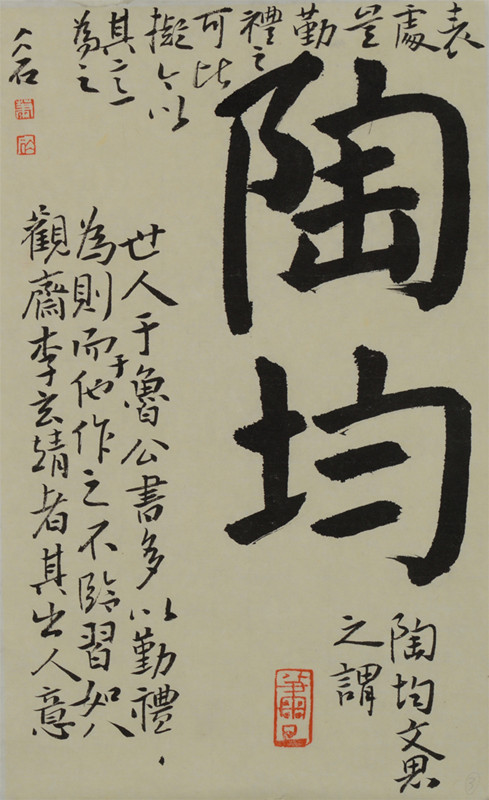 陶均
陶均文思
之謂
世人于魯公書多以勤禮、
為則而于他作之不臨習如八
觀齋李玄靖者其出人意
表
處
豈
勤
禮之
可比
擬今以
其
為之
石